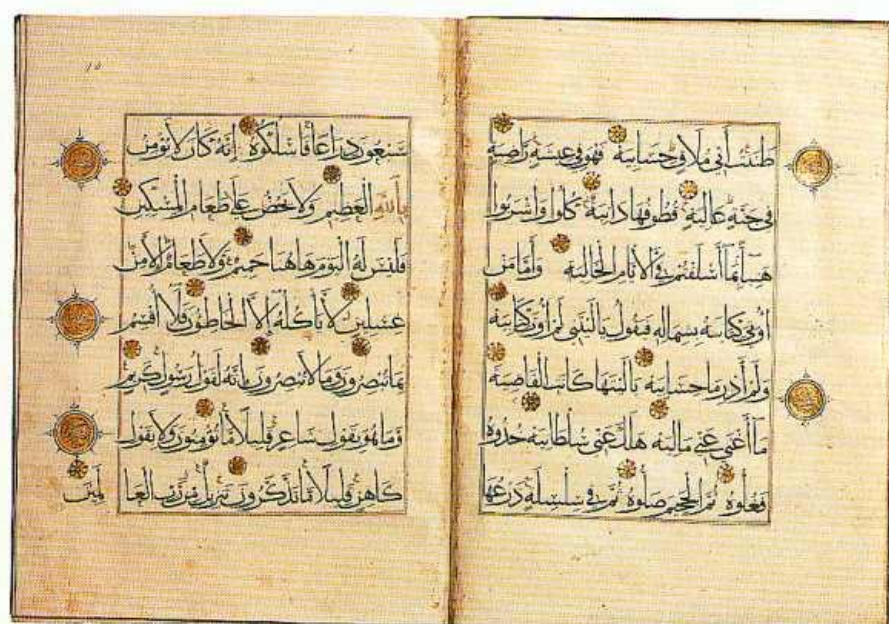 ظَنَنْتُ أَنِّي مُلَاقٍ حِسَابِيَهْ فَهُوَ فِي عِيشَةٍ رَاضِيَةٍ
فِي جَنَّةٍ عَالِيَةٍ قُطُوفُهَا دَانِيَةٌ كُلُوا وَاشْرَبُوا
هَنِيئًا بِمَا أَسْلَفْتُمْ فِي الْأَيَّامِ الْخَالِيَةِ وَأَمَّا مَنْ
أُوتِيَ كِتَابَهُ بِشِمَالِهِ فَيَقُولُ يَا لَيْتَنِي لَمْ أُوتَ كِتَابِيَهْ
وَلَمْ أَدْرِ مَا حِسَابِيَهْ يَا لَيْتَهَا كَانَتِ الْقَاضِيَةَ
مَا أَغْنَى عَنِّي مَالِيَهْ هَلَكَ عَنِّي سُلْطَانِيَهْ خُذُوهُ
فَغُلُّوهُ ثُمَّ الْجَحِيمَ صَلُّوهُ ثُمَّ فِي سِلْسِلَةٍ ذَرْعُهَا
سَبْعُونَ ذِرَاعًا فَاسْلُكُوهُ إِنَّهُ كَانَ لَا يُؤْمِنُ
بِاللَّهِ الْعَظِيمِ وَلَا يَحُضُّ عَلَى طَعَامِ الْمِسْكِينِ
فَلَيْسَ لَهُ الْيَوْمَ هَاهُنَا حَمِيمٌ وَلَا طَعَامٌ إِلَّا مِنْ
غِسْلِينٍ لَا يَأْكُلُهُ إِلَّا الْخَاطِئُونَ فَلَا أُقْسِمُ
بِمَا تُبْصِرُونَ وَمَا لَا تُبْصِرُونَ إِنَّهُ لَقَوْلُ رَسُولٍ كَرِيمٍ
وَمَا هُوَ بِقَوْلِ شَاعِرٍ قَلِيلًا مَا تُؤْمِنُونَ وَلَا بِقَوْلِ
كَاهِنٍ قَلِيلًا مَا تَذَكَّرُونَ تَنْزِيلٌ مِنْ رَبِّ الْعَا لَمِينَ